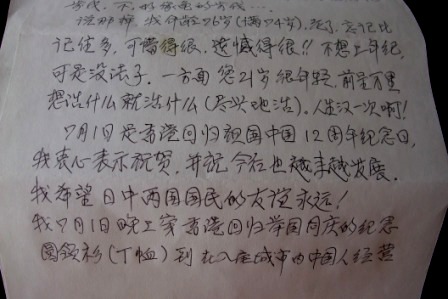 没办那，我什龄26岁(摘24岁)，死了，忘记比
记住多，可惜得很，遗憾得很!!不想上年纪，
可是没法子．一方面 您21岁很年轻，前呈万里
想说什么就浩什么(尽兴地浩)．人生汉一次啊!
7月1日是香港回归祖国中国12周年纪念日，
我衷心表示祝贺．并祝 今后也越来越发展．
我希望日中两国国民的友谊永远!
我7月1日晚上穿香港回归举国同庆的纪念
圆领衫(丁恤)到 在入座城市由中国人经营